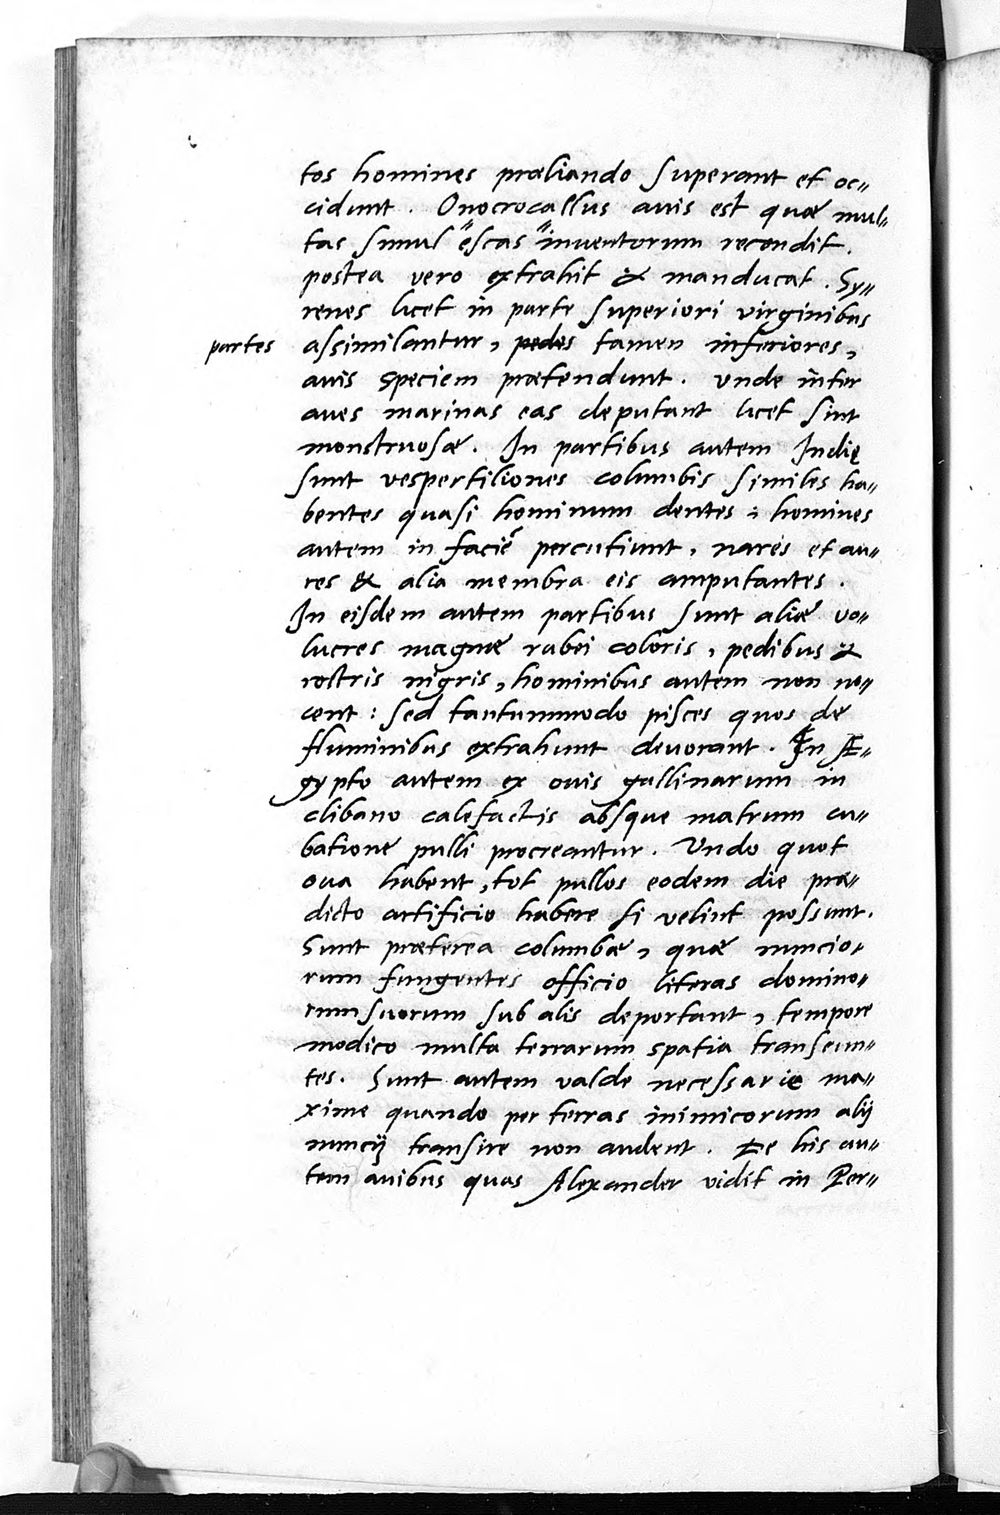 tos homines præliando superant et oc=
cidunt. Onocrocallus auis est quæ mul=
tas simul escas inuentorum recondit.
postea vero extrahit & manducat. Sy=
renes licet in parte superiori virginibus
partes assimilantur, pedes tamen inferiores,
auis speciem prætendunt. vnde inter
aues marinas eas deputant licet sint
monstruosæ. In partibus autem Indię
sunt vespertiliones columbis similes ha=
bentes quasi hominum dentes; homines
autem in faciē percutiunt, nares et au=
res & alia membra eis amputantes.
In eisdem autem partibus sunt aliæ vo=
lucres magnæ rubei coloris, pedibus &
rostris nigris, hominibus autem non no=
cent: sed tantummodo pisces quos de
fluminibus extrahunt deuorant. In Æ=
gypto autem ex ouis gallinarum in
clibano calefactis absque matrum cu=
batione pulli procreantur. Vndo quot
oua habent, tot pullos eodem die præ=
dicto artificio habere si velint possunt.
Sunt præterea columbæ, quæ nuncio=
rum fungentes officio literas domino=
rum suorum sub alis deportant, tempore
modico multa terrarum spatia transeun=
tes. Sunt autem valde necessarie ma=
xime quando per terras inimicorum alij
nuncij transire non audent. De his au=
tem auibus quas Alexander vidit in Per=